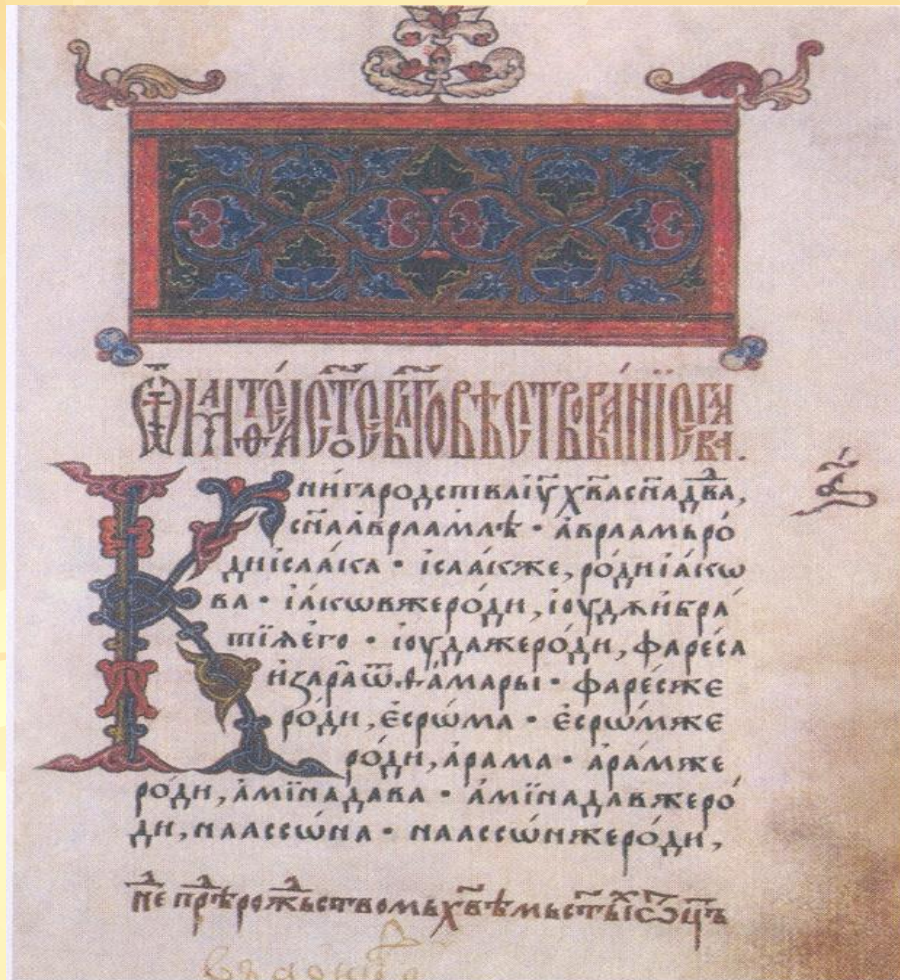 Ѿ маⷴѳеа ст҃о бл҃говѣствованїе гла҃ва.
нигародстваі҆у҃ х҃васн҃адв҃да,
сн҃ааврлаамлѣ · а҆враамъро́
дииса́а́ка · і҆саа́кже, ро́диіа́кѡ
ва · і҆а́кѡвжеро́ди, і҆оуди́ибра́
тїѧе҆го̀ · і҆оу́дажеро́ди, фаре́са
изараѿѳа́мары · фаре́сже
ро́ди, е҆срѡ́ма · е҆срѡ́мже
ро́ди, а҆ра́ма · а҆ра́мже
ро́ди, а҆мїнада́ва · а҆мїнада́вжеро́
ди, наассѡ́на · наассѡ́нжеро́ди,
не прⷣѣ рожⷣьствомь хв҃ѣмь ст҃ыⷯ ѡц҃ъ